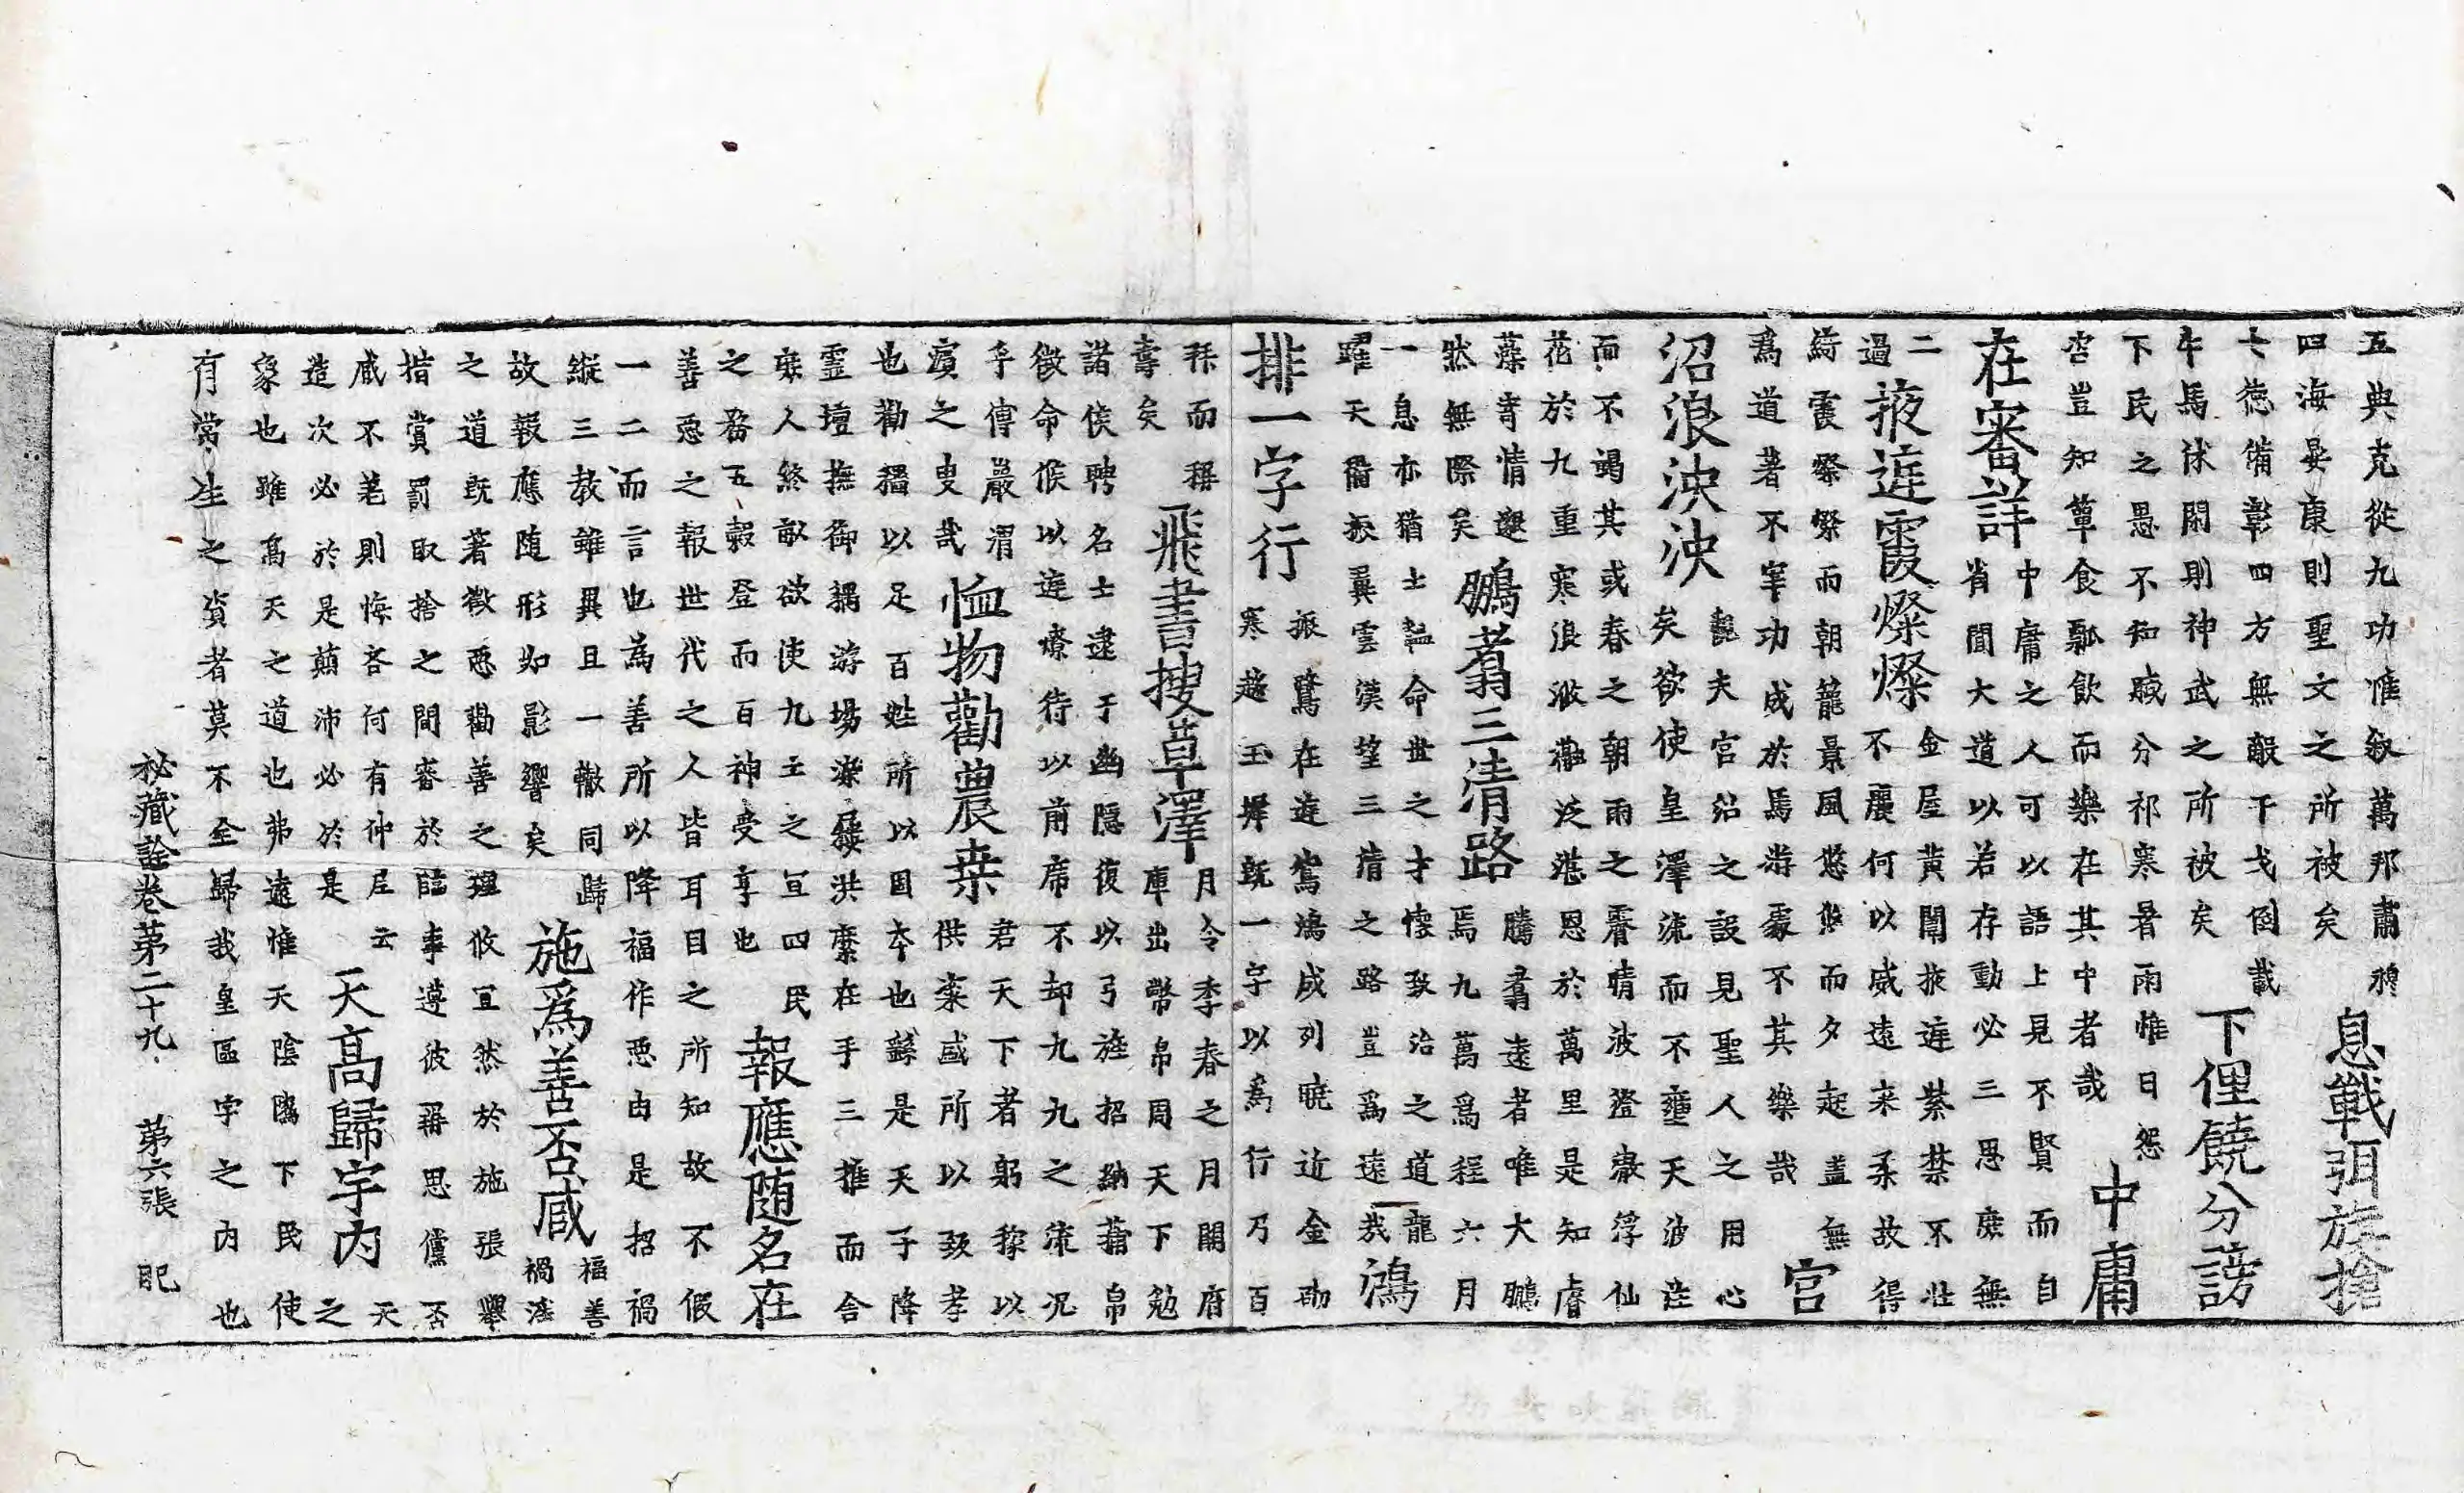 五典克從九功惟叙萬邦肅穆
四海晏康則聖文之所被矣
息戰弭旌搶
七德備彰四方無敵干戈倒載
牛馬休閑則神武之所被矣
下俚饒分謗
下民之愚不知賦分祁寒暑雨惟日怨
咨豈知簞食瓢飲而樂在其中者哉
中庸
在審詳
中庸之人可以語上見不賢而自
省聞大道以若存動必三思庶無
二
過
掖逰霞燦燦
金屋黃闈掖逰紫禁不壯
不麗何以威遠来柔故得
綺霞燦燦而朝籠景風悠悠而夕起盖無
爲道著不宰功成於焉游豫不其樂哉
宮
沼浪泱泱
觀夫宮沼之設見聖人之用心
矣欲使皇澤流而不壅天波注
而不竭其或春之朝雨之霽晴波澄瀲浮仙
花於九重寒浪灔泛湛恩於萬里是知睿
藻寄情邈
然無際矣
鵬翥三清路
騰翥遠者唯大鵬
焉九萬爲程六月
一息亦猶士韞命世之才懷致治之道一龍
躍天衢振翼雲漢望三清之路豈爲遠哉
鴻
排一字行
振鷺在逰鴛鴻成列曉近金砌
寒趍玉墀既一字以爲行乃百
拜而稱
壽矣
飛書搜草澤
月令季春之月開府
庫出幣帛周天下勉
諸侯聘名士逮于幽隱復以弓旌招納蒲帛
徵命候以逰燎待以前席不却九九之流况
乎傅巖渭
濱之叟哉
恤物勸農桒
君天下者躬稼以
供粢盛所以致孝
也勸穡以足百姓所以固夲也繇是天子降
靈壇撫御耦游場屨洪縻在手三推而舍
庶人終畝欲使九土之宜四民
之務五穀登而百神受享也
報應随名在
善惡之報世代之人皆耳目之所知故不假
一二而言也為善所以降福作惡由是招禍
縱三教雖異且一轍同歸
故報應随形如影響矣
施爲善否臧
福善
禍滛
之道既著徵惡勸善之理攸宜然於施張舉
措賞罰取捨之間審於臨事遵彼再思儻否
臧不差則悔吝何有仲尼云
造次必於是顛沛必於是
天高歸宇内
天
之
象也雖高天之道也弗遠惟天陰隲下民使
有常生之資者莫不全歸我皇區宇之内也
秘藏詮卷第二十九 第六張